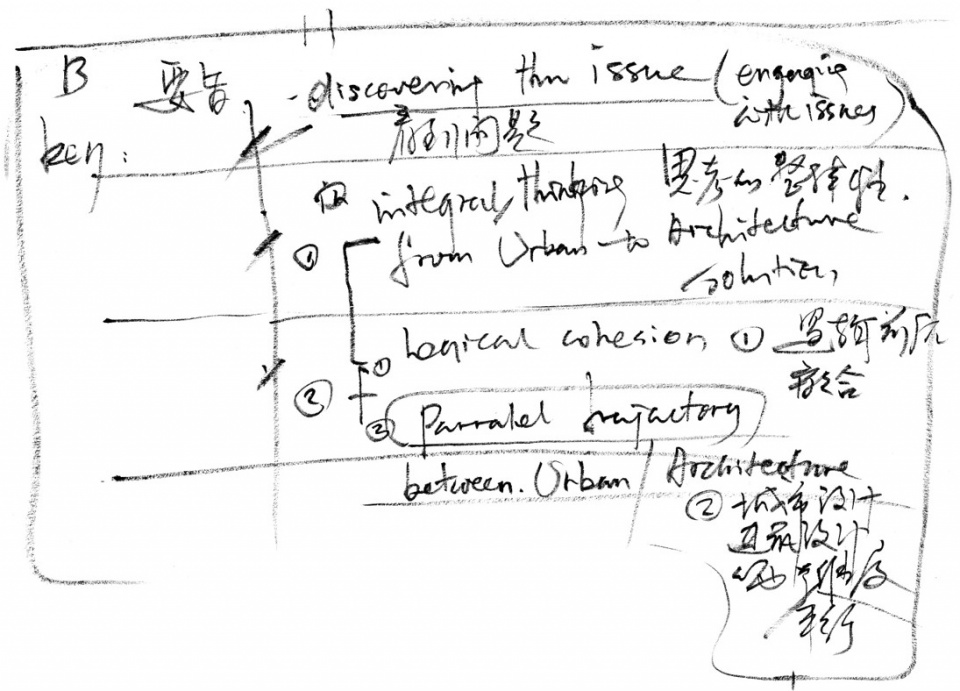 B 要旨 - discovering the issue (engaging with issues)
key: 看到问题
integral thinking 思考的整体性.
① from Urban to Architecture
solution
① Logical cohesion ① 逻辑前后
② 契合
② Parralel trajectory
between Urban / Architecture
② 城市设计
建筑设计
平行